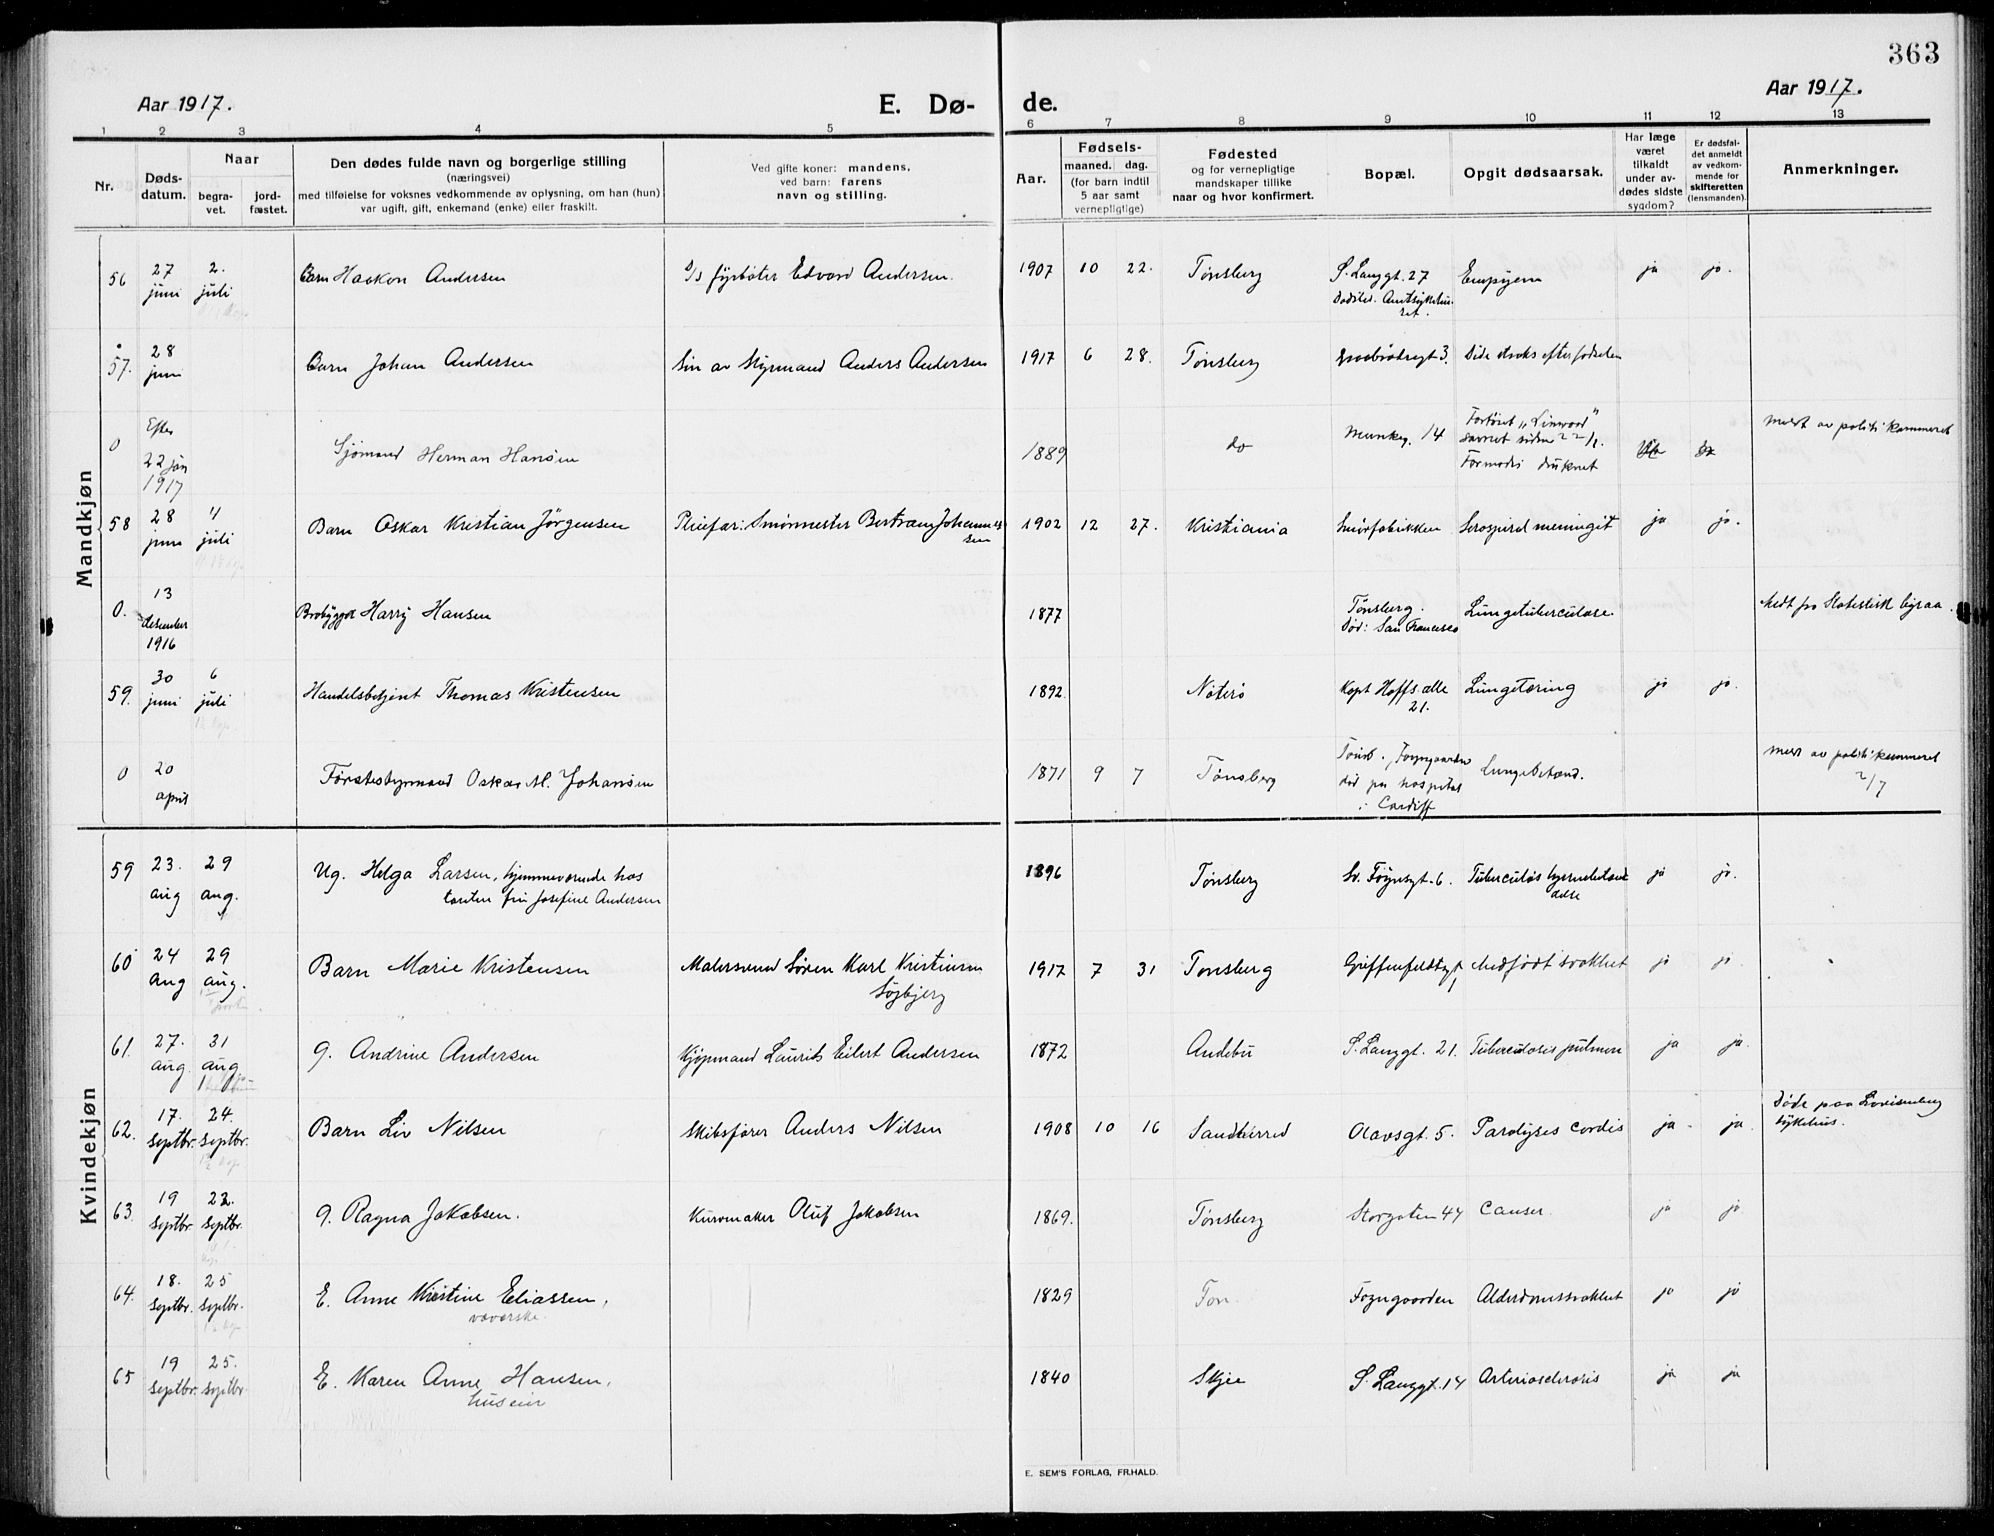 363
Aar 1917.
E. Dø-
de.
Aar 1917.
1 2 3 4 5 6 7 8 9 10 11 12 13
Nr.
Døds-
datum.
Naar
begra-
vet.
jord-
fæstet.
Den dødes fulde navn og borgerlige stilling
(næringsvei)
med tilføielse for voksnes vedkommende av oplysning, om han (hun)
var ugift, gift, enkemand (enke) eller fraskilt.
Ved gifte koner: mandens,
ved barn: farens
navn og stilling.
Aar.
Fødsels-
maaned. dag.
(for barn indtil
5 aar samt
vernepligtige)
Fødested
og for vernepligtige
mandskaper tillike
naar og hvor konfirmert.
Bopæl.
Opgit dødsaarsak.
Har læge
været
tilkaldt
under av-
dødes sidste
sygdom?
Er dødsfal-
det anmeldt
av vedkom-
mende for
skifteretten
(lensmanden).
Anmerkninger.
Mandkjøn
56 27 juni 2. juli Barn Haakon Andersen fyrbøter Edvard Andersen. 1907 10 22. Tønsberg S. Langgt. 27 Empyem ja ja.
57. 28 juni Barn Johan Andersen Søn av Styrmand Anders Andersen 1917 6 28. Tønsberg 3. Døde straks efter fødselen
0 Efter 22 jan 1917 Sjømand Herman Hansen 1889 do Munkeg. 14 Fartøiet "Linwood" savnet siden 22/1. Formodes druknet meldt av politikammeret
58 28 juni 4 juli Barn Oskar Kristian Jörgensen Pleiefar: Bertram Johannessen 1902 12 27. Kristiania ja ja.
0. 13 desember 1916 Harry Hansen 1877 Tønsberg. Død: San Francisco Lungetuberculose Medt fra Statistisk byraa.
59. 30 juni 6 juli Handelsbetjent Thomas Kristensen 1892. Nøterø Kapt Hoffs alle 21. Lungetæring ja ja.
0 20 april Førstestyrmand Oskar M. Johansen 1871 9 7 Tønsberg Tønsb. Foyngaarden død paa hospital i Cardiff Lungebetænd. meldt av politikammeret 2/7
Kvindekjøn
59 23. aug 29 aug. Ug. Helga Larsen, hjemmeværende hos tanten fru Josefine Andersen 1896 Tønsberg Sv. Føynsgt. 6. Tuberculøs hjernebetændelse ja ja.
60 24 Aug 29 aug. Barn Marie Kristensen Malersvend Søren Karl Kristensen Søgbjerg 1917 7 31 Tønsberg Griffenfeldtsgt 1 Medfödt svakhet ja ja
61. 27. aug. 31 aug. G. Andrine Andersen Kjøpmand Laurits Eilert Andersen 1872 Andebu S. Langgt. 21. Tuberculosis pulmon ja ja.
62. 17. septbr. 24. septbr. Barn Liv Nilsen Skibsfører Anders Nilsen 1908 10 16 Sandherred Olavsgt. 5. Paralyses cordis ja ja. Døde paa Lovisenberg sykehus.
63. 19 septbr. 22. septbr. G. Ragna Jakobsen. Kurvmaker Oluf Jakobsen 1869. Tønsberg Storgaten 44 Cancer. ja ja
64. 18. septbr. 25 septbr. E. Anne Kristine Eliassen, væverske. 1829 Tøn. Foyngaarden Alderdomssvakhet ja ja
65 19 septbr. 25. septbr. E. Karen Anne Hansen, huseier 1840 Skjee S. Langgt. 14 Arteriosclerosis ja ja
E. SEM'S FORLAG, FR.HALD.